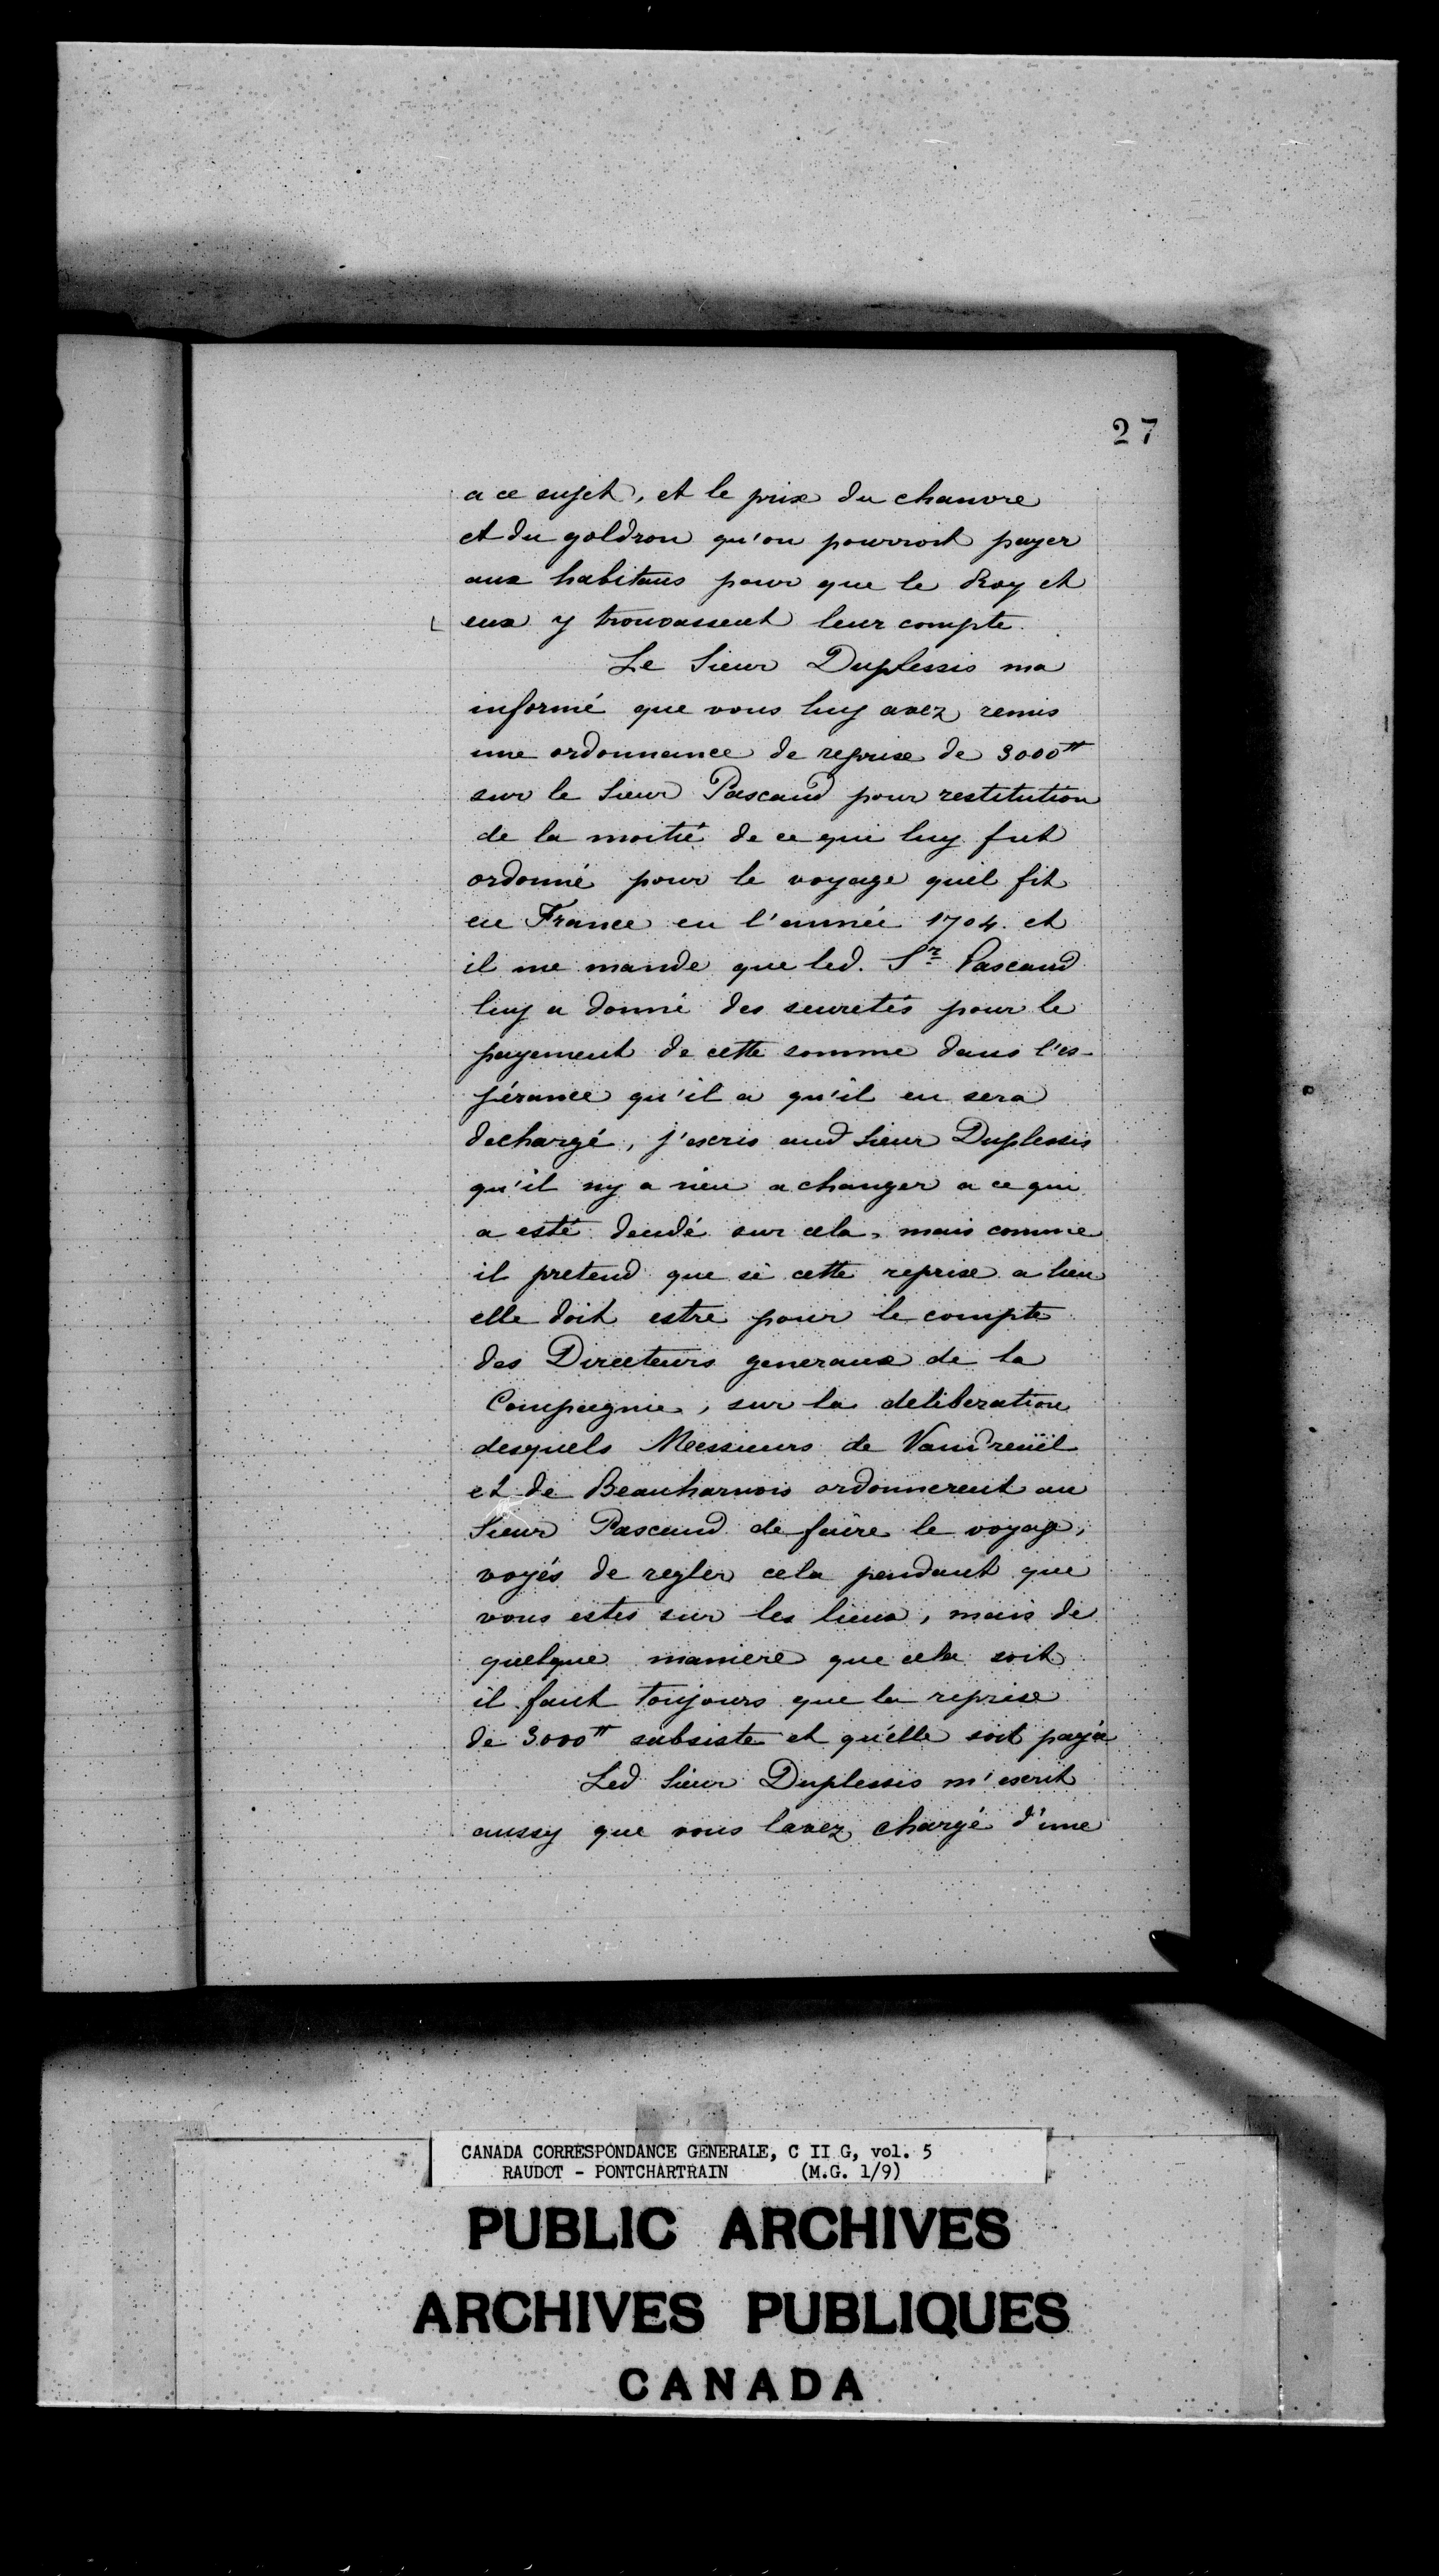 27
a ce sujet, et le prix du chanvre
et du goldron qu'on pourroit payer
aux habitans pour que le Roy et
eux y trouvassent leur compte.
Le Sieur Duplessis ma
informé que vous luy avez remis
une ordonnance de reprise de 3000tt
sur le Sieur Pascaud pour restitution
de la moitié de ce qui luy fut
ordonné pour le voyage quil fit
en France en l'année 1704. et
il me mande que led. Sr Pascaud
luy a donné des seuretés pour le
payement de cette somme dans l'es-
pérance qu'il a qu'il en sera
dechargé, j'escris aud Sieur Duplessis
qu'il ny a rien a changer a ce qui
a esté decidé sur cela, mais comme
il pretend que si cette reprise a lieu
elle doit estre pour le compte
des Directeurs generaux de la
Compagnie, sur la deliberation
desquels Messieurs de Vaudreuïl
et de Beauharnois ordonnerent au
Sieur Pascaud de faire le voyage,
voyés de regler cela pendant que
vous estes sur les lieux, mais de
quelque maniere que cela soit
il faut toujours que la reprise
de 3000tt subsiste et qu'elle soit payée
Led Sieur Duplessis m'escrit
aussy que vous lavez chargé d'une
CANADA CORRESPONDANCE GENERALE, C II G, vol. 5
RAUDOT - PONTCHARTRAIN (M.G. 1/9)
PUBLIC ARCHIVES
ARCHIVES PUBLIQUES
CANADA